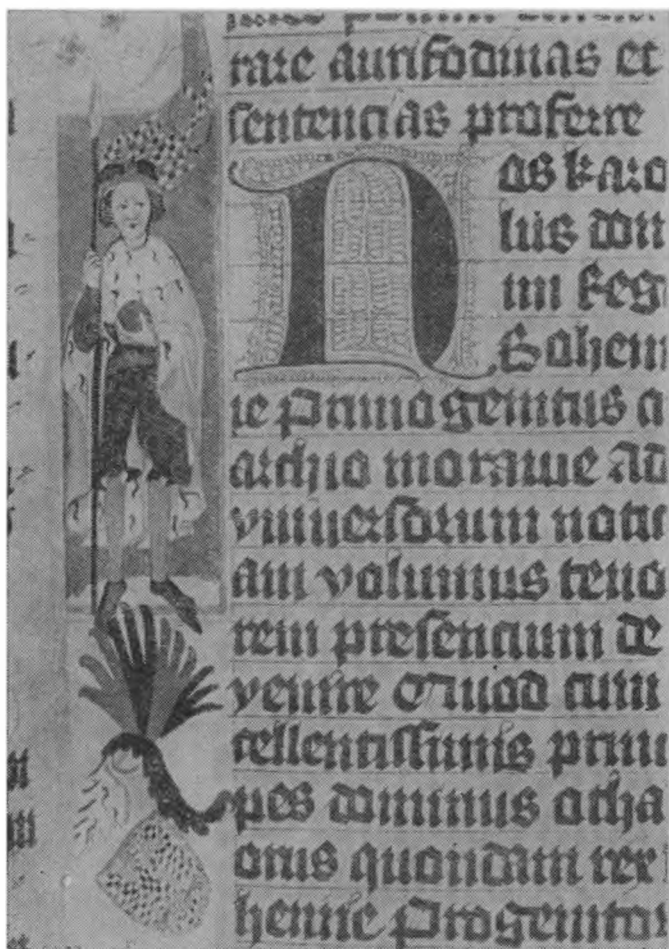 rare aurifodinas et
sentencias proferre
Nos karo
lus dom
ini Reg
Bohem
ie Primogenitus
archio moravie Ad
vniuersorum notic
am volumus teno
rem presencium de
venire Quod cum
cellentissimus prin
pes dominus otha
orus quondam rex
hemie Progenitor